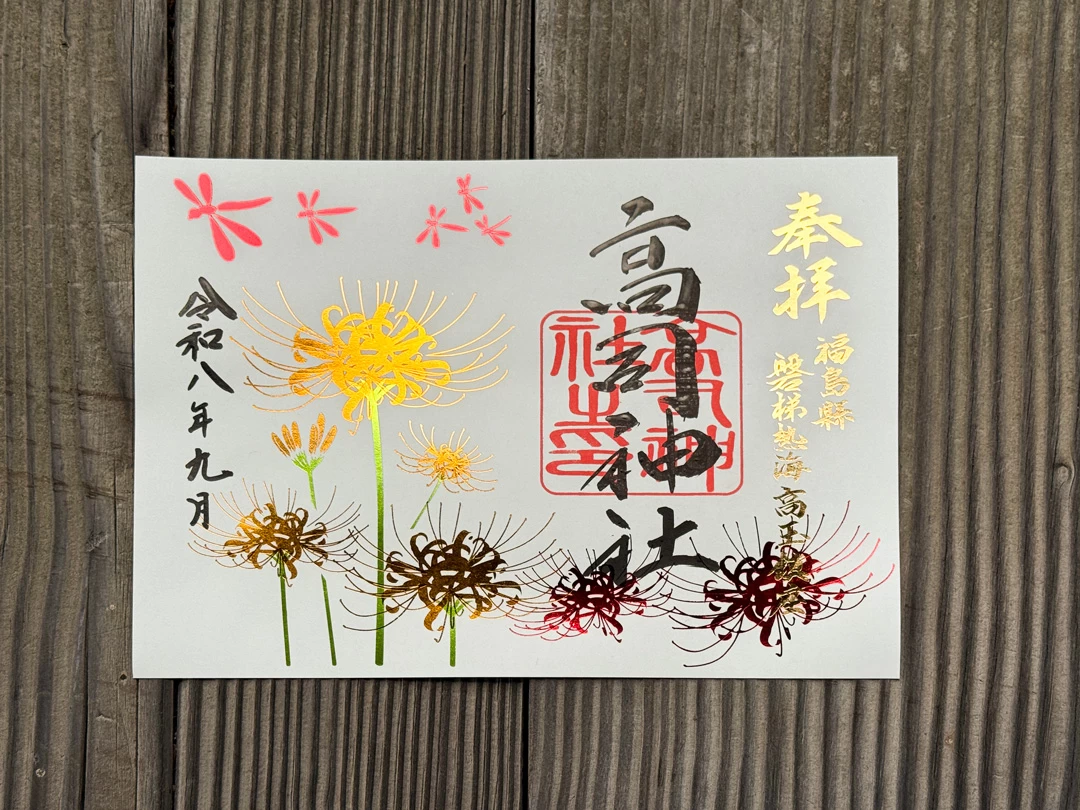 奉拝
福島縣
磐梯熱海高玉
高司神社
高司神
社之印
令和八年九月